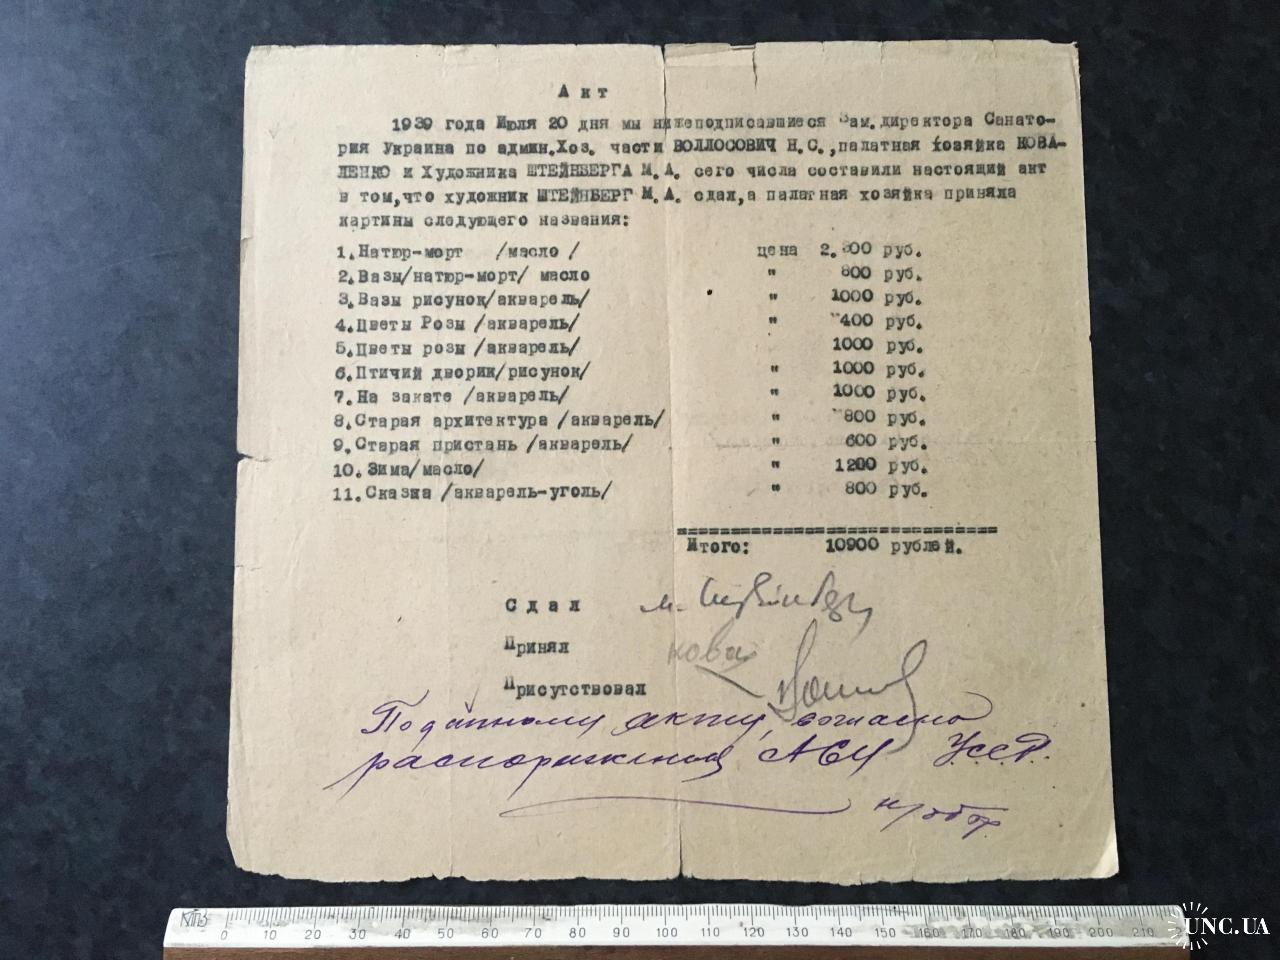 Акт
1939 года Июля 20 дня мы нижеподписавшиеся Зам.директора Санато-
рия Украина по админ.Хоз. части ВОЛЛОСОВИЧ Н.С.,палатная хозяйка КОВА-
ЛЕНКО и Художника ШТЕЙНБЕРГА М.А. сего числа составили настоящий акт
в том,что художник ШТЕЙНБЕРГ М.А. сдал,а палатная хозяйка приняла
картины следующего названия:
1.Натюр-морт /масло / цена руб.
2.Вазы/натюр-морт/ масло " 800 руб.
3.Вазы рисунок/акварель/ " 1000 руб.
4.Цветы Розы /акварель/ " 400 руб.
5.Цветы розы /акварель/ 1000 руб.
6.Птичий дворик/рисунок/ " 1000 руб.
7.На закате /акварель/ " 1000 руб.
8.Старая архитектура /акварель/ " 800 руб.
9.Старая пристань /акварель/ " 600 руб.
10.Зима/масло/ " 1200 руб.
11.Сказка /акварель-уголь/ " 800 руб.
Итого: 10900 рублей.
Сдал м.
Принял кова
Присутствовал
По данному акту, согласно
распоряжения УССР.
0 10 20 30 40 50 60 70 80 90 100 110 120 130 140 150 160 170 180 190 200 210
UNC.UA